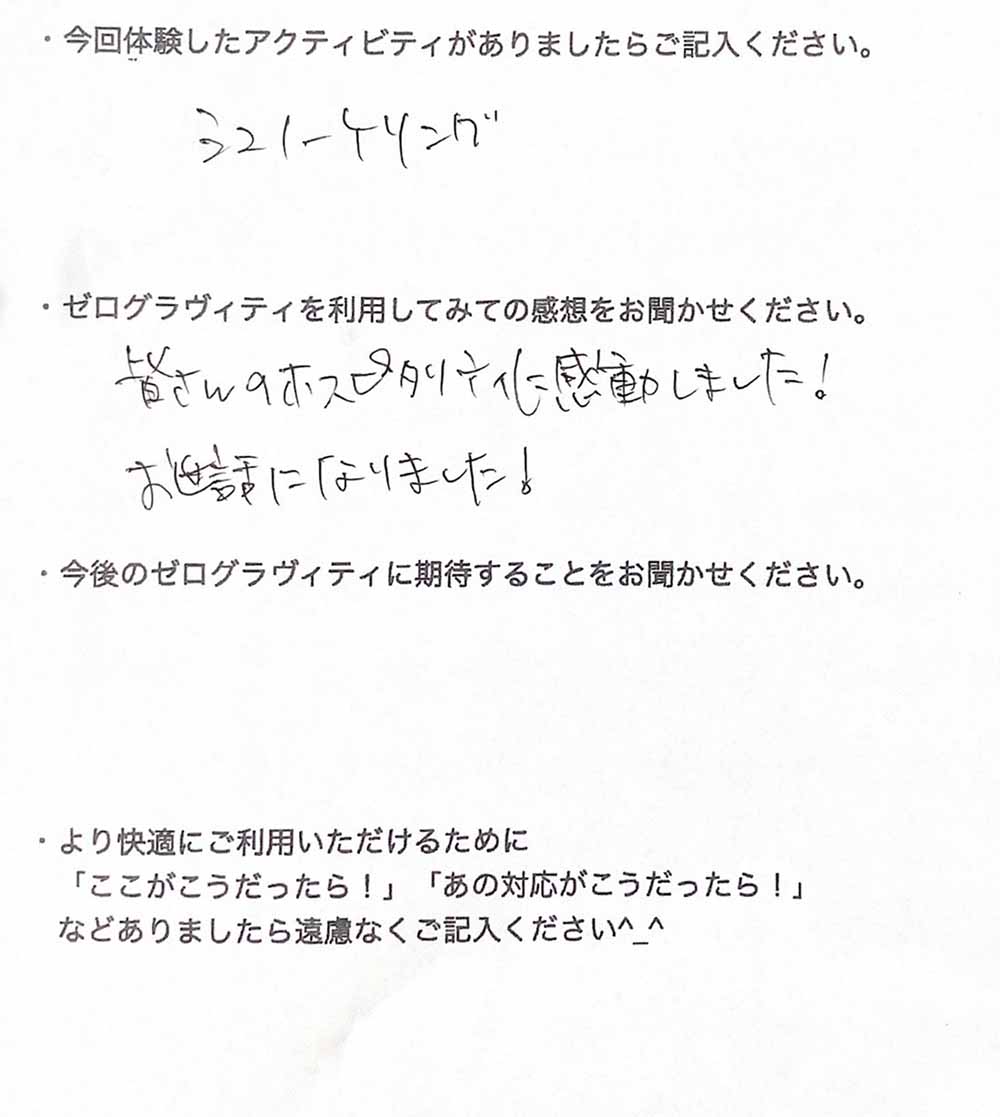 ・今回体験したアクティビティがありましたらご記入ください。
シュノーケリング
・ゼログラヴィティを利用してみての感想をお聞かせください。
皆さんのホスピタリティに感動しました!
お世話になりました!
・今後のゼログラヴィティに期待することをお聞かせください。
・より快適にご利用いただけるために
「ここがこうだったら！」「あの対応がこうだったら！」
などありましたら遠慮なくご記入ください^_^